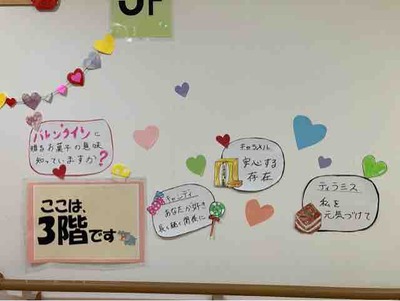 3F
バレンタインに
贈るお菓子の意味
知っていますか?
キャラメル
安心する
存在
キャンディ
あなたが好き
長く続く関係に
ティラミス
私を
元気づけて
ここは、
3階です